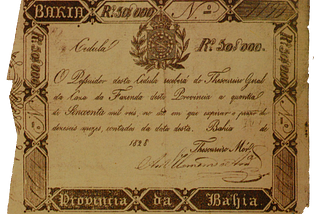 BAHIA Rs. 50$000 N.º
Cedula Rs. 50$000.
O Possuidor desta Cedula receberá do Thesoureiro Geral
da Caixa da Fazenda desta Provincia a quantia
de Sincoenta mil reis, no dia em que expirar o prazo de
dezoseis mezes, contados da data desta. Bahia de
1828
Thesoureiro Mór
Rs. 50$000
N.º
Rs. 50$000
N.º
Provincia da Bahia